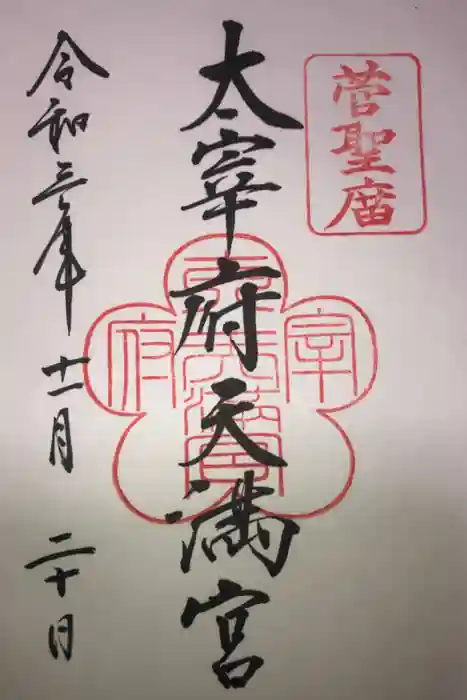 菅聖庿
太宰府天満宮
令和三年 十一月 二十日